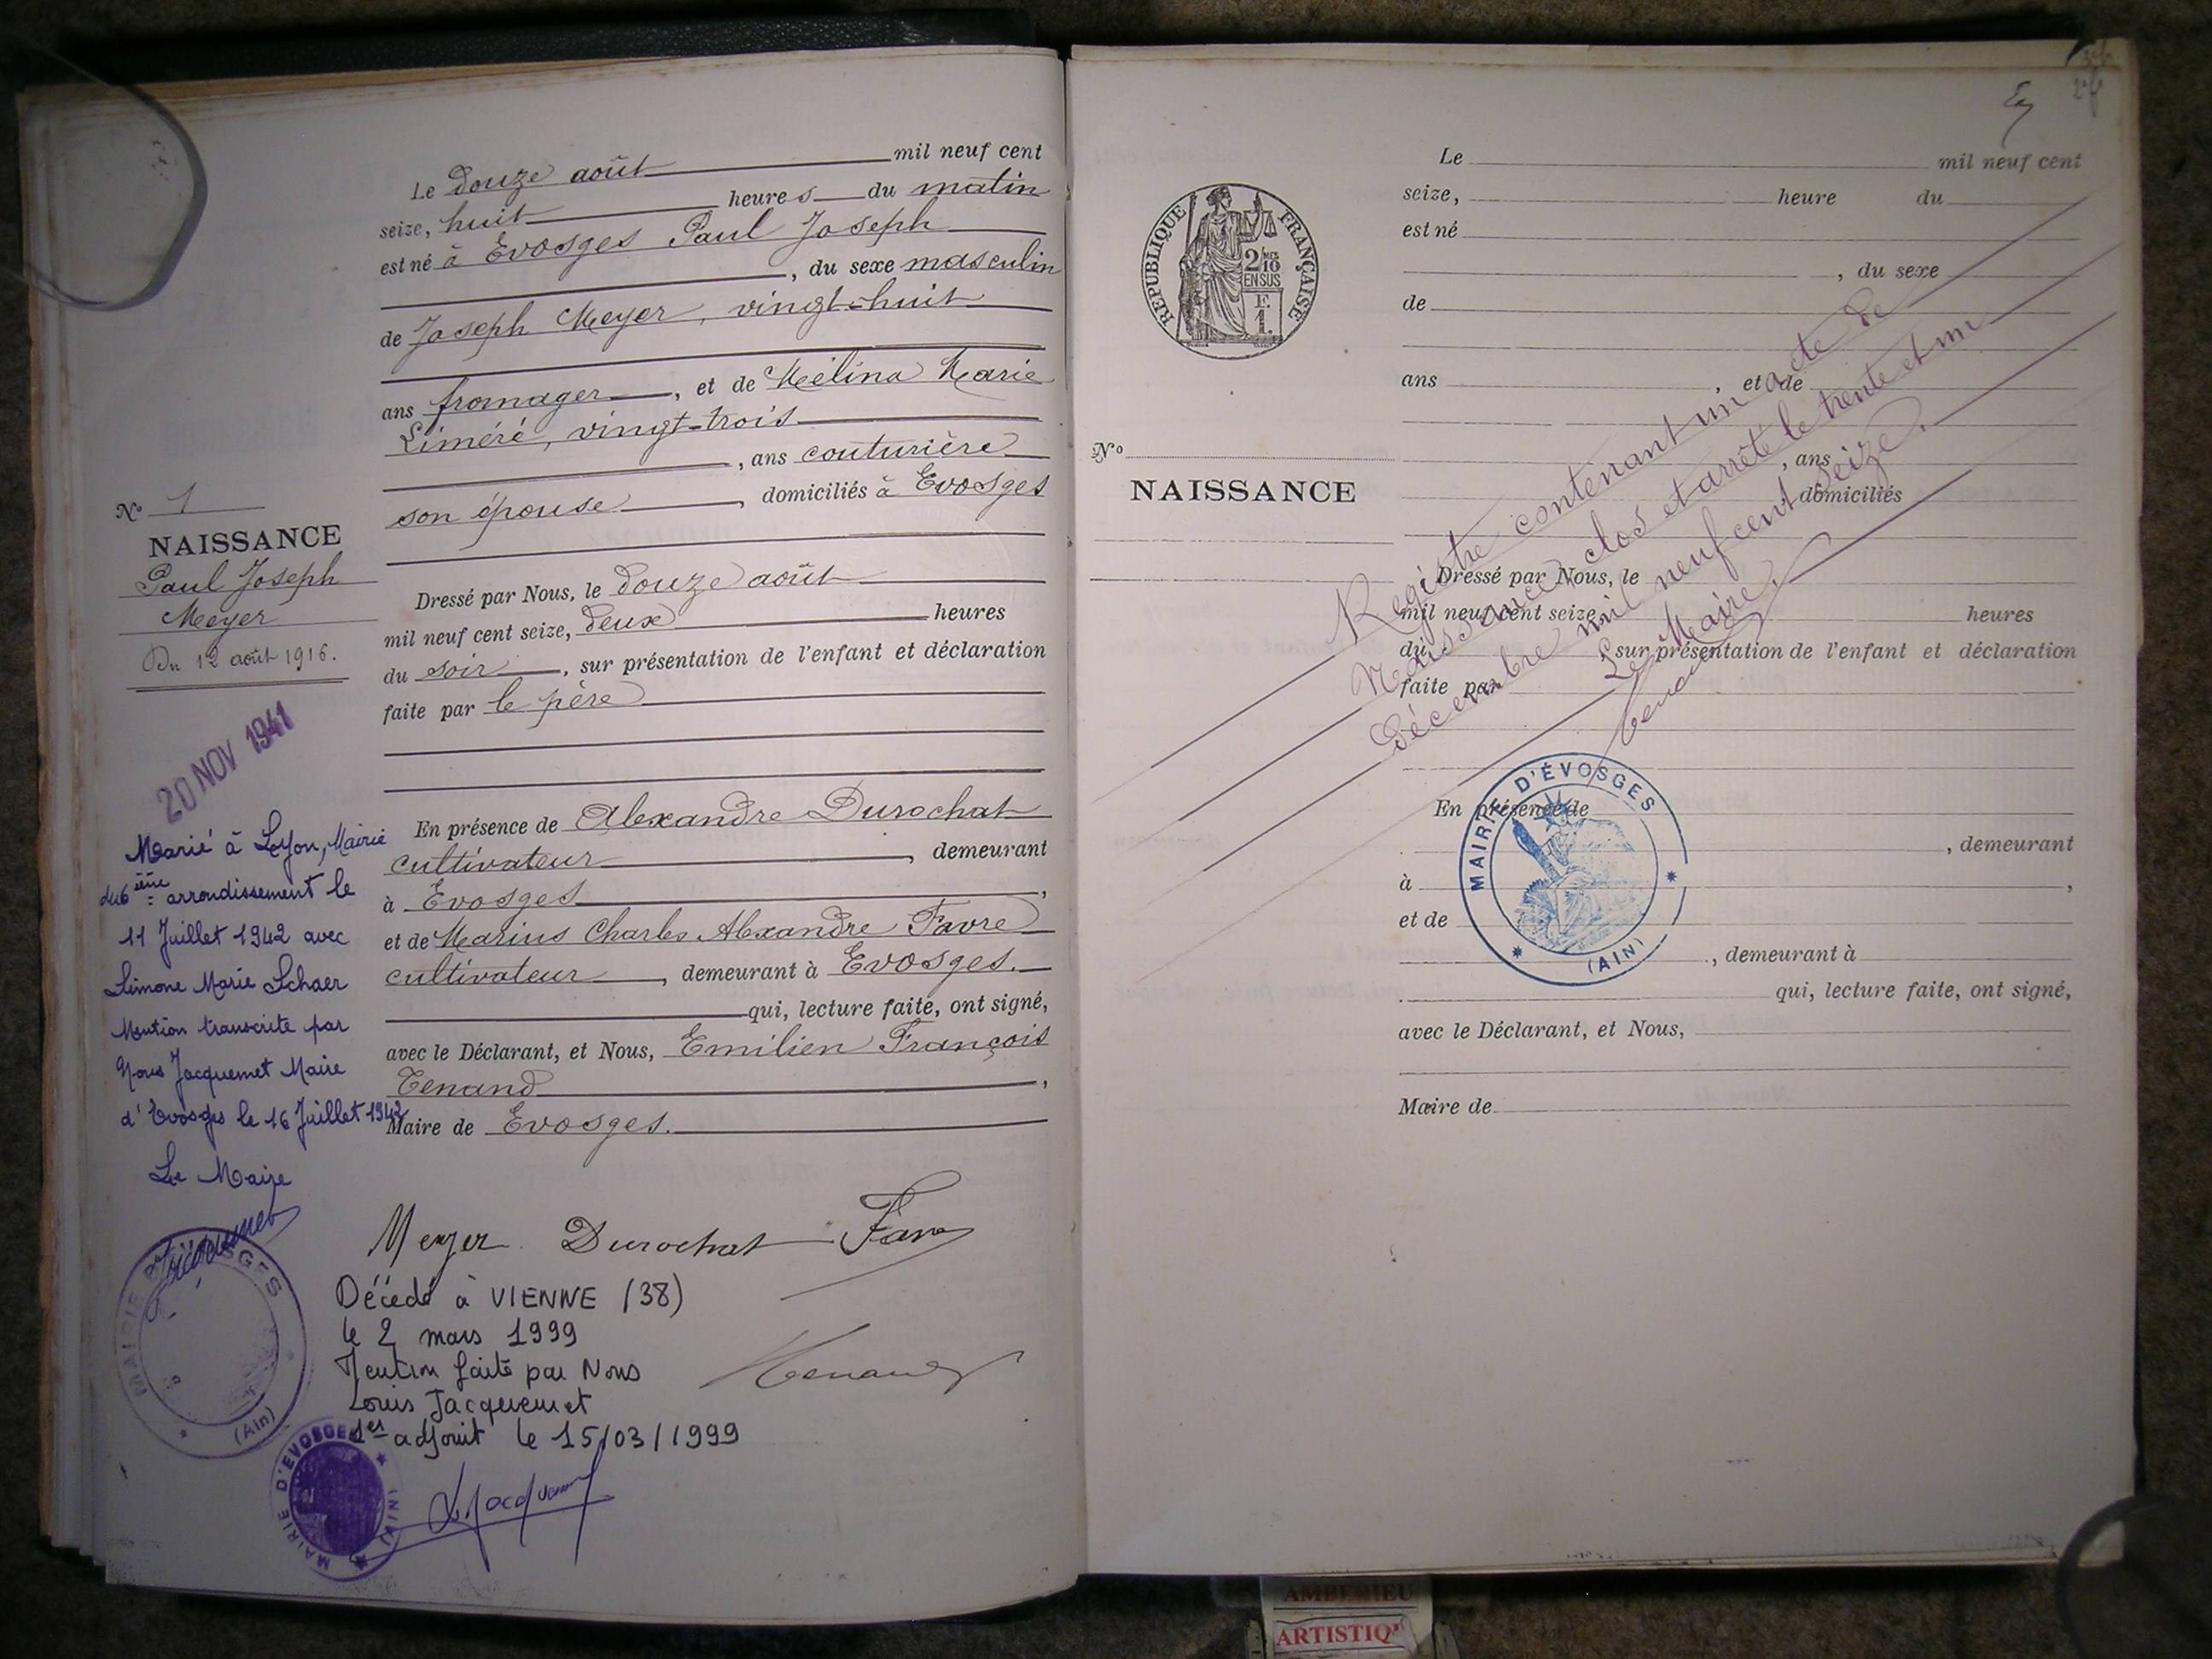 Le douze août mil neuf cent
seize, huit heures du matin
est né à Evosges Paul Joseph
, du sexe masculin
de Joseph Meyer, vingt-huit
ans fromager, et de Mélina Marie
Liméré, vingt-trois
, ans couturière
son épouse, domiciliés à Evosges
Dressé par Nous, le douze août
mil neuf cent seize, deux heures
du soir, sur présentation de l'enfant et déclaration
faite par le père
En présence de Alexandre Durochat
cultivateur, demeurant
à Evosges,
et de Marius Charles Alexandre Favre
cultivateur, demeurant à Evosges.
qui, lecture faite, ont signé,
avec le Déclarant, et Nous, Emilien François
Tenand,
Maire de Evosges.
Meyer Durochat Favre
Tenand
N° 1
NAISSANCE
Paul Joseph
Meyer
Du 12 août 1916.
20 NOV 1941
Marié à Lyon, Mairie
du 6ème arrondissement le
11 Juillet 1942 avec
Simone Marie Schaer
Mention transcrite par
Nous Jacquemet Maire
d'Evosges le 16 Juillet 1942
Le Maire
Jacquemet
MAIRIE D'EVOSGES
(Ain)
Décédé à VIENNE (38)
le 2 mars 1999
Mention faite par Nous
Louis Jacquemet
1er adjoint le 15/03/1999
MAIRIE D'EVOSGES
(AIN)
L Jacquemet
REPUBLIQUE FRANÇAISE
2/10 MES
EN SUS
F.
1.
N°
NAISSANCE
Le mil neuf cent
seize, heure du
est né
, du sexe
de
ans , et de
, ans
domiciliés
Dressé par Nous, le
mil neuf cent seize, heures
du , sur présentation de l'enfant et déclaration
faite par
En présence de
, demeurant
à ,
et de
, demeurant à
qui, lecture faite, ont signé,
avec le Déclarant, et Nous,
Maire de
Registre contenant un acte de
Naissance, clos et arrêté le trente et un
Décembre mil neuf cent seize.
Le Maire.
Tenand
MAIRIE D'ÉVOSGES
(AIN)
AMBERIEU
ARTISTIQ